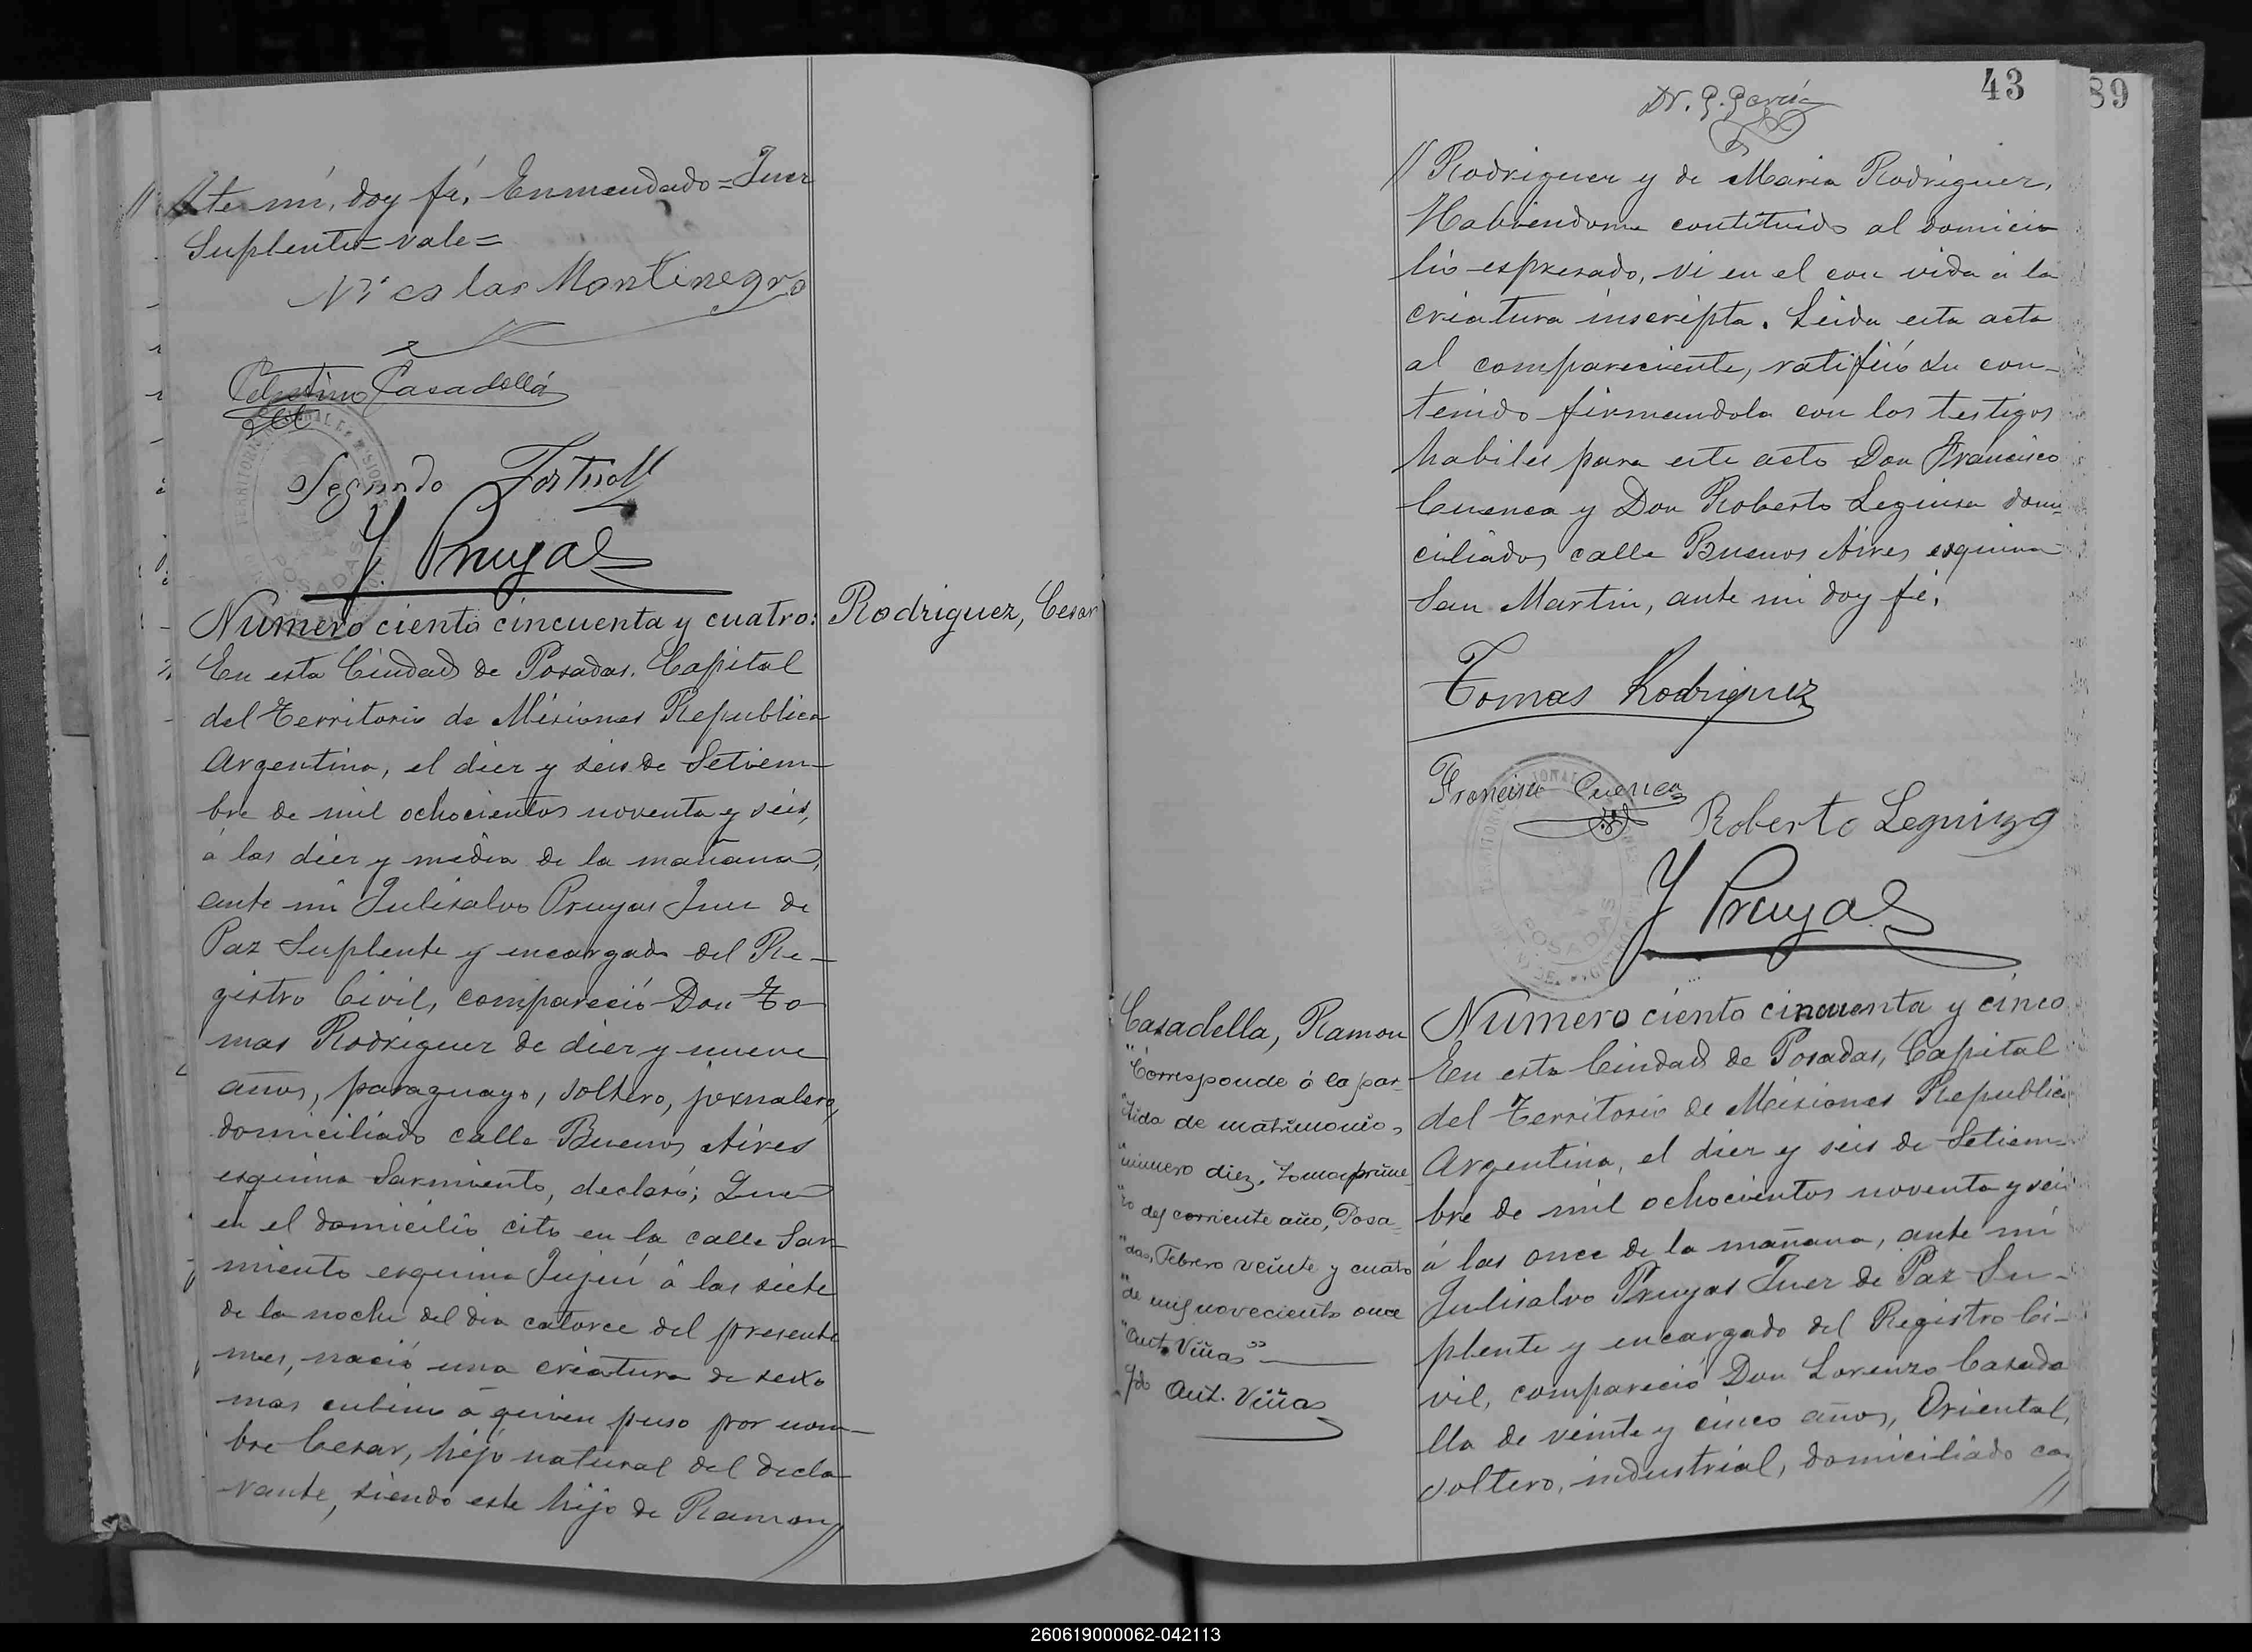 // Ate mi, doy fé, Enmendado=Juez
Suplente=vale=
Nicolas Montenegro
Celestino Casadellá
Segundo
Y Pruyas
Numero ciento cincuenta y cuatro:
Rodriguez, Cesar
En esta Ciudad de Posadas. Capital
del Territorio de Misiones Republica
Argentina, el diez y seis de Setiem-
bre de mil ochocientos noventa y seis,
á las diez y media de la mañana,
ante mi Julisalvo Pruyas Juez de
Paz Suplente y encargado del Re-
gistro Civil, compareció Don To-
mas Rodriguez de diez y nueve
años, paraguayo, soltero, jornalero,
domiciliado calle Buenos Aires
esquina Sarmiento, declaró; Que
en el domicilio cito en la calle Sar-
miento esquina Jujuí á las siete
de la noche del dia catorce del presente
mes, nació una criatura de sexo
mas culino á quien puso por nom-
bre Cesar, hijo natural del decla-
rante, siendo este hijo de Ramon //
43
89
Dr. G. García
// Rodriguez y de Maria Rodriguez,
Habiendome contituido al domici
lio espresado, vi en el con vida á la
criatura inscripta. Leida esta acta
al compareciente, ratifició su con-
tenido firmandola con los testigos
habiles para este acto Don Francisco
Cuenca y Don Roberto Leguiza domi
ciliados calle Buenos Aires esquina
San Martin, ante mi doy fé,
Tomas Rodriguez
Francisco Cuenca
Roberto Leguiza
Y Pruyas
POSADAS
Casadella, Ramon
"Corresponde á la par-
"tida de matrimonio,
"número diez, Tomo prime
"ro del corriente año, Posa-
"das, Febrero veinte y cuatro
"de mil novecientos once
"Ant. Viñas"
Ant. Viñas
Numero ciento cincuenta y cinco
En esta Ciudad de Posadas, Capital
del Territorio de Misiones Republica
Argentina, el diez y seis de Setiem-
bre de mil ochocientos noventa y seis
á las once de la mañana, ante mi
Julisalvo Pruyas Juez de Paz Su-
plente y encargado del Registro Ci-
vil, compareció Don Lorenzo Casade
lla de veinte y cinco años, Oriental,
soltero, industrial, domiciliado ca
//
260619000062-042113